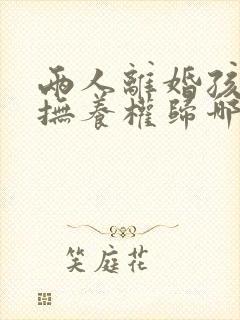 兩人離婚孩
撫養權歸哪
笑庭花